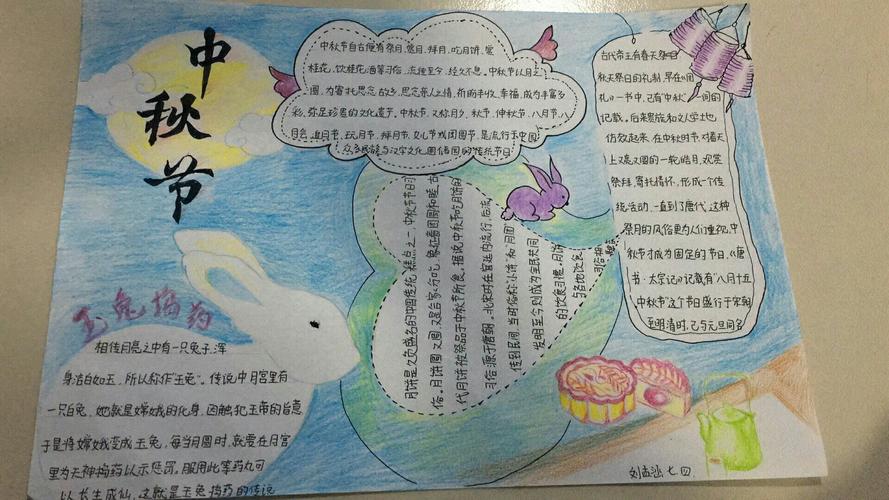 中秋节
中秋节自古便有祭月、赏月、拜月、吃月饼、赏
桂花、饮桂花酒等习俗，流传至今，经久不息。中秋节以月之
圆，为寄托思念故乡，思念亲人之情，祈盼丰收、幸福，成为丰富多
彩、弥足珍贵的文化遗产。中秋节，又称月夕、秋节、仲秋节、八月节、八
月会、追月节、玩月节、拜月节、女儿节或团圆节，是流行于中国
众多民族与汉字文化圈诸国的传统节日
古代帝王有春天祭日
秋天祭月的礼制，早在《周
礼》一书中，已有“中秋”一词的
记载。后来贵族和文人学士也
仿效起来，在中秋时节，对着天
上又亮又圆的一轮皓月，观赏
祭拜，寄托情怀，形成一个传
统活动，一直到了唐代，这种
祭月的风俗更为人们重视，中
秋节才成为固定的节日，《唐
书·太宗记》记载有“八月十五
中秋节”这个节日盛行于宋朝
至明清时，已与元旦同名
月饼是久负盛名的中国传统糕点之一，中秋节节日习
俗。月饼圆又圆，又是合家分吃，象征着团圆和睦，古
代月饼被祭品于中秋节所食。据说中秋节吃月饼的
习俗源于唐朝。北宋时在宫廷内流行，后流
传到民间，当时俗称“小饼”和“月团”
发明至今则成为全民共同
的饮食习惯。月饼
与各地饮食
玉兔捣药
相传月亮之中有一只兔子，浑
身洁白如玉，所以称作“玉兔”。传说中月宫里有
一只白兔，她就是嫦娥的化身，因触犯玉帝的旨意
于是将嫦娥变成玉兔，每当月圆时，就要在月宫
里为天神捣药以示惩罚。服用此等药丸可
以长生成仙，这就是玉兔捣药的传说
七四